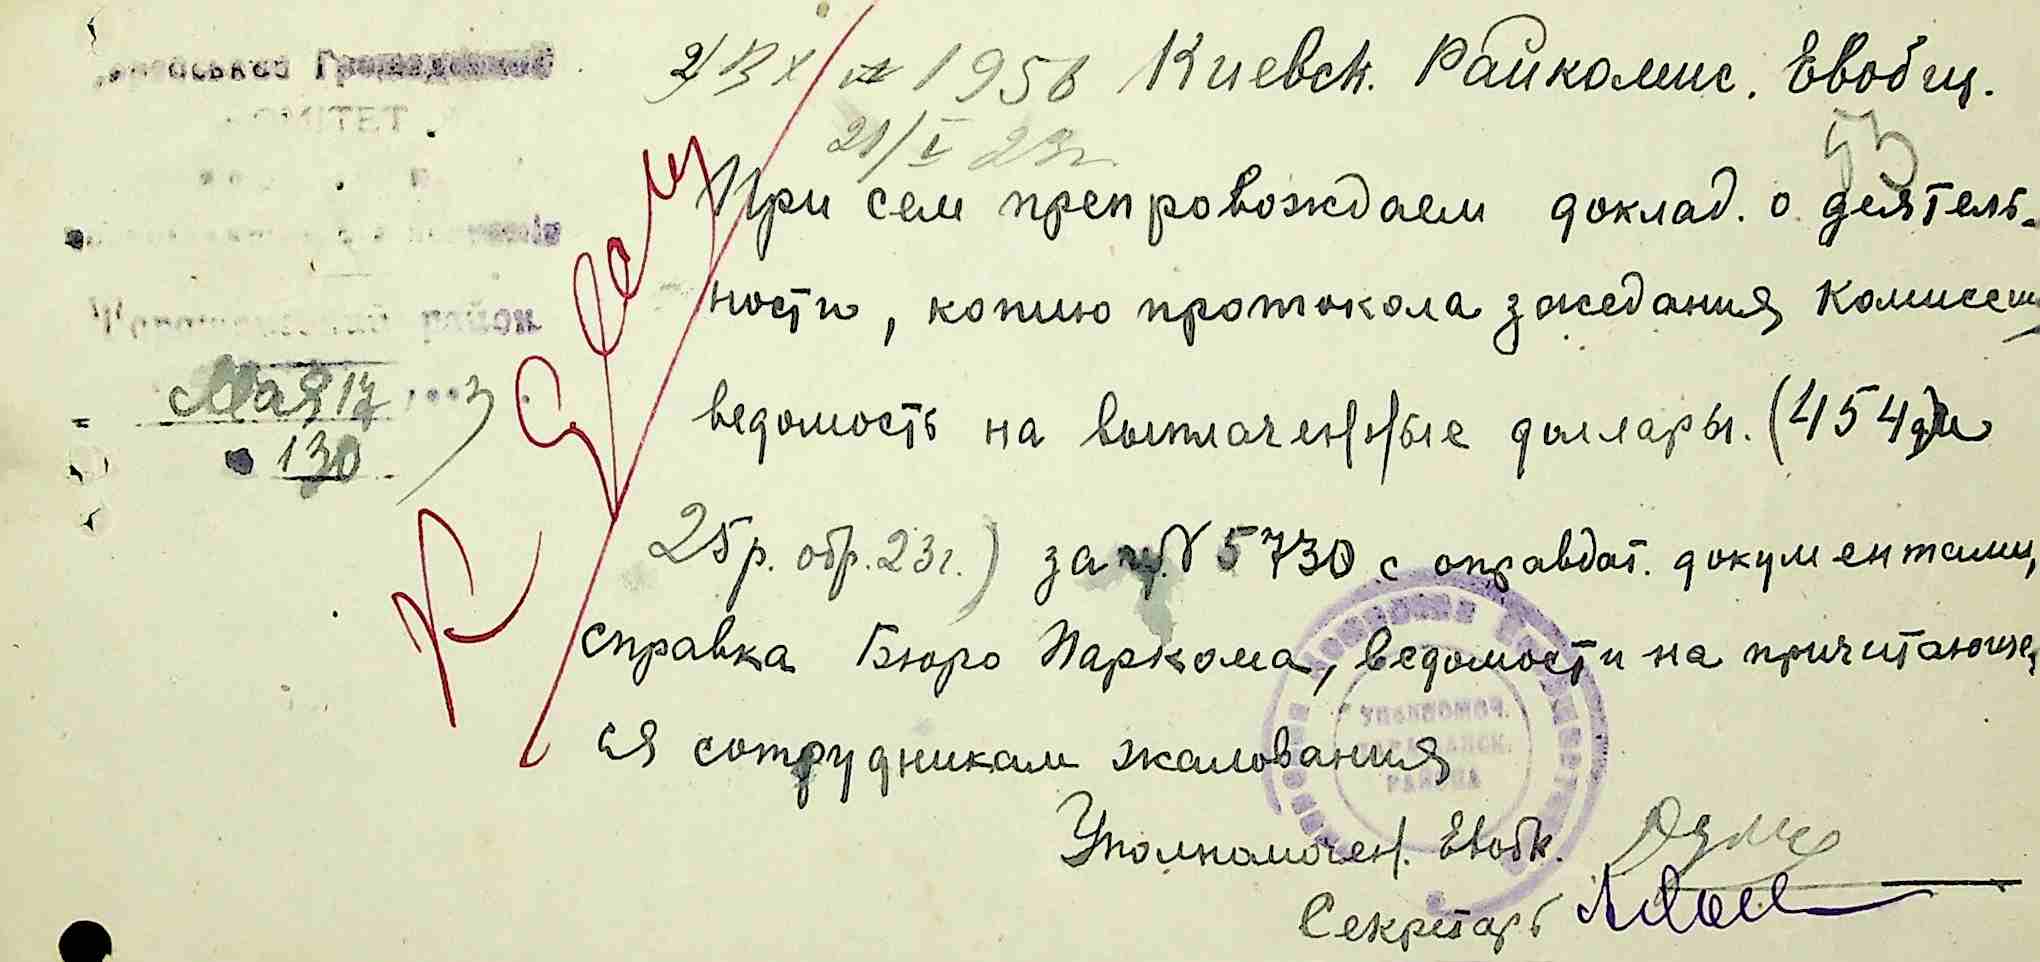 КОМИТЕТ
район
Мая 17
130
Вх № 1956 Киевск. Райкомис. Евобщ.
21/V 23г
53
При сем препровождаем доклад. о деятель-
ности, копию протокола заседания Комиссии
ведомость на выплаченные доллары. (454 д. и
25 р. обр. 23г.) за № 5730 с оправдат. документами,
справка Бюро Наркома, ведомости на причитающие
ся сотрудникам жалования
К делу
Уполномоч.
РАЙОНА
Уполномочен. Евобк.
Секретарь